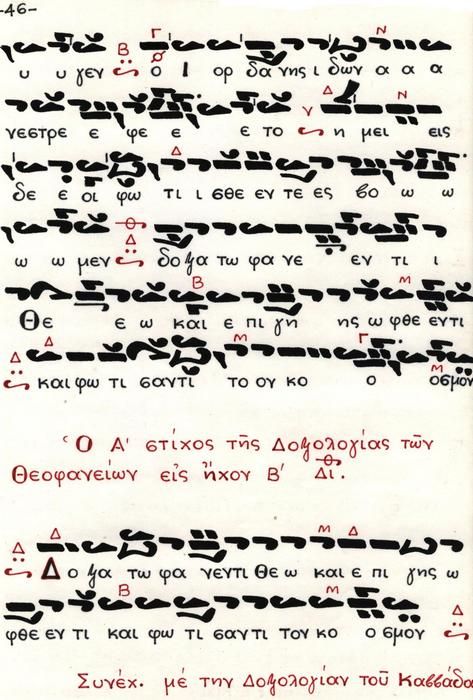 -46-
υ υ γεν Β ο Ι ορ δα νης ι δων α α α
νεστρε ε φε ε ε το η μει εις
δε ε οι φω τι ι σθε εν τε ες βο ω ω
ω ω μεν δο ξα τω φα νε εν τι ι
Θε ε ω και ε πι γη ης ω φθε εντι
και φω τι σαντι το ον κο ο οσμον
Ὁ Α' στίχος τῆς Δοξολογίας τῶν
Θεοφανείων εἰς ἦχον Β' Δι.
Δο ξα τω φα νεντι Θε ω και ε πι γης ω
φθε εν τι και φω τι σαντι τον κο ο σμον
Συνέχ. μέ την Δοξολογίαν τοῦ Καββάδα